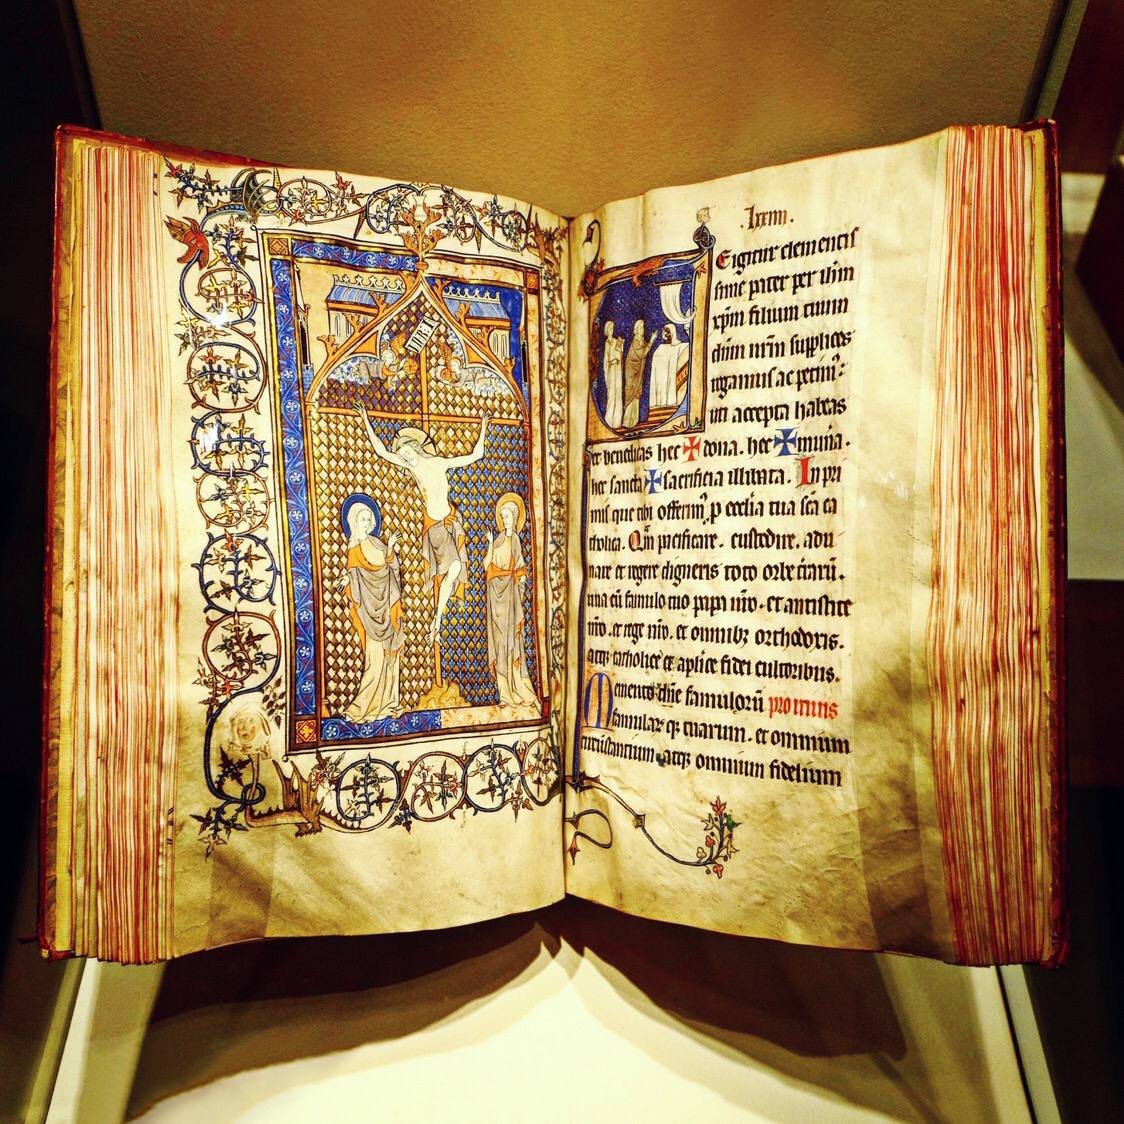 INRI
.lxxiiii.
E igitur clementis
sime pater per ihm
xpm filium tuum
dnm nrm supplices
rogamus ac petim⁹:
uti accepta habeas
et benedicas hec ✠ dona. hec ✠ mun̄a.
hec sancta ✠ sacrificia illibata. In pri
mis que tibi offerim⁹ p ecclia tua scā ca
tholica. Qm̄ pacificare. custodire. adu
nare et regere digneris toto orbe tr̄arū.
una cū famulo tuo papa nr̄o. et antistite
nr̄o. et rege nr̄o. et omnibz orthodoxis.
atqz catholice et aplice fidei cultoribus.
Memento dn̄e famulorū pro uiuis
famularz qz tuarum. et omnium
circūstantium. atqz omnium fidelium